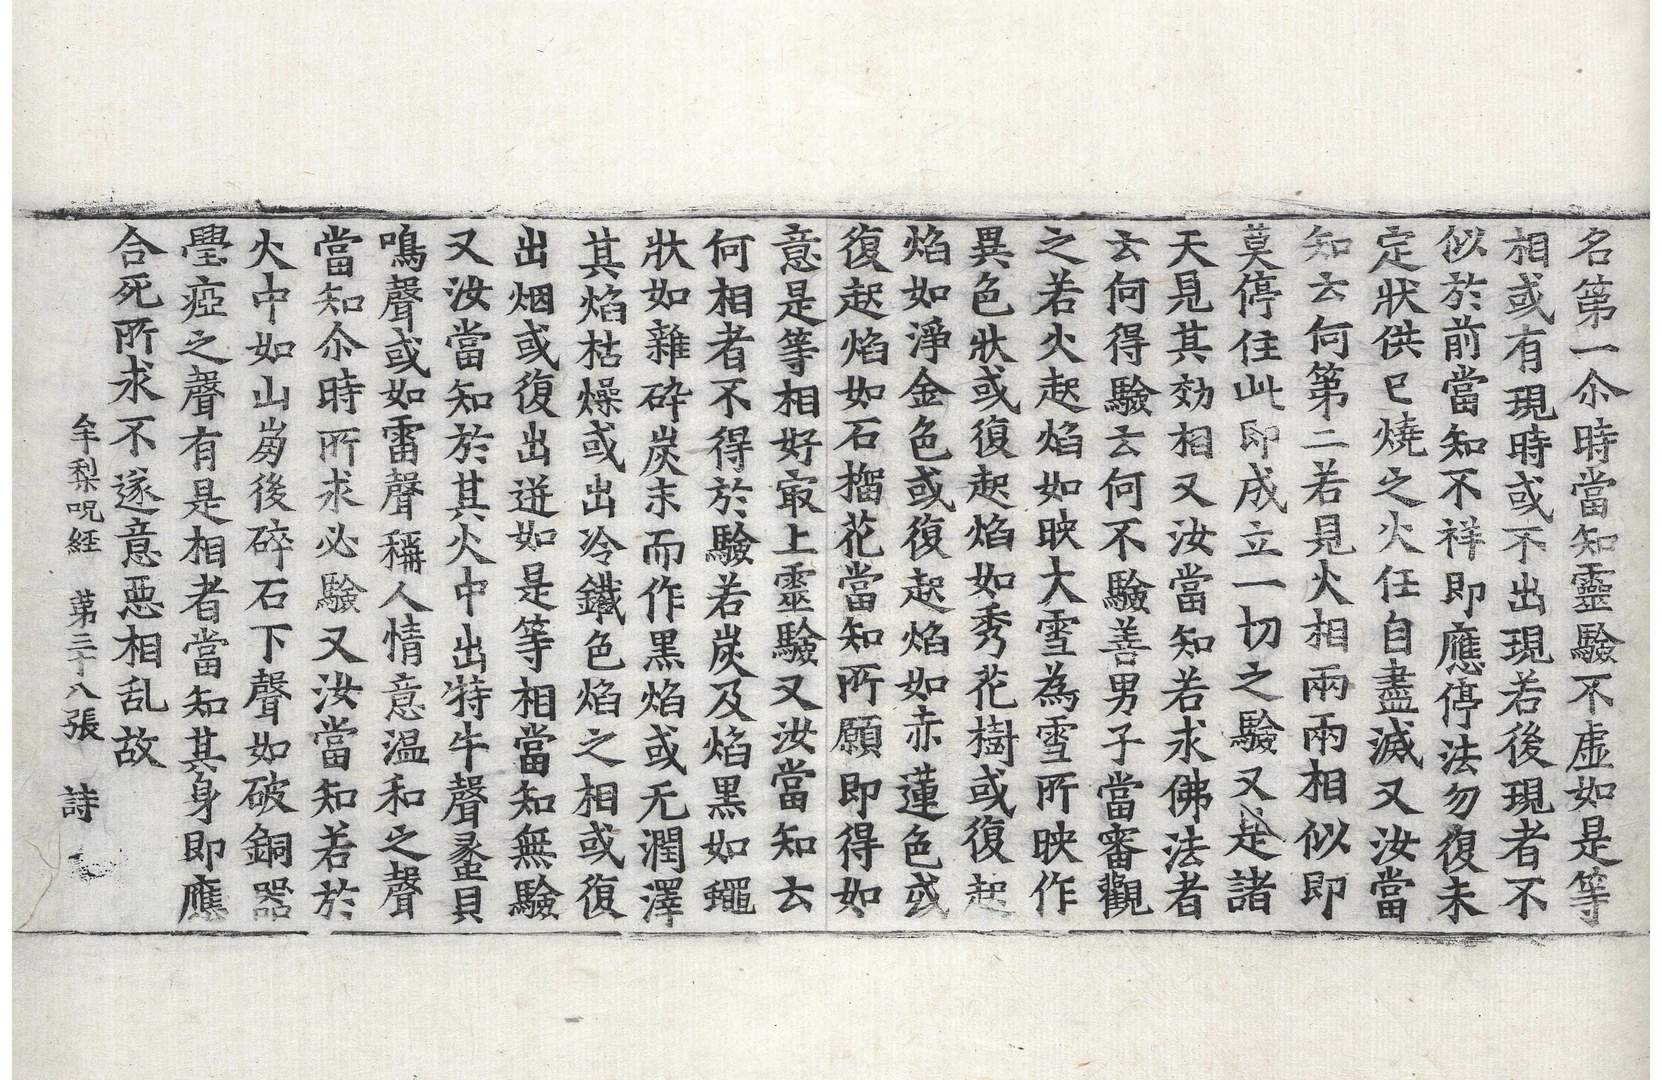 名第一尒時當知靈驗不虛如是等
相或有現時或不出現若後現者不
似於前當知不祥即應停法勿復未
定狀供已燒之火任自盡滅又汝當
知云何第二若見火相兩兩相似即
莫停住此即成立一切之驗又是諸
天見其効相又汝當知若求佛法者
云何得驗云何不驗善男子當審觀
之若火起焰如映大雪為雪所映作
異色狀或復起焰如秀花樹或復起
焰如淨金色或復起焰如赤蓮色或
復起焰如石榴花當知所願即得如
意是等相好㝡上靈驗又汝當知云
何相者不得於驗若炭及焰黑如鑞
狀如雜碎炭末而作黑焰或无潤澤
其焰枯燥或出冷鐵色焰之相或復
出烟或復出迸如是等相當知無驗
又汝當知於其火中出特牛聲蠡貝
鳴聲或如雷聲稱人情意温和之聲
當知尒時所求必驗又汝當知若於
火中如山崩後碎石下聲如破銅器
瘂之聲有是相者當知其身即應
合死所求不遂意惡相乱故
牟梨呪經 第三十八張 詩